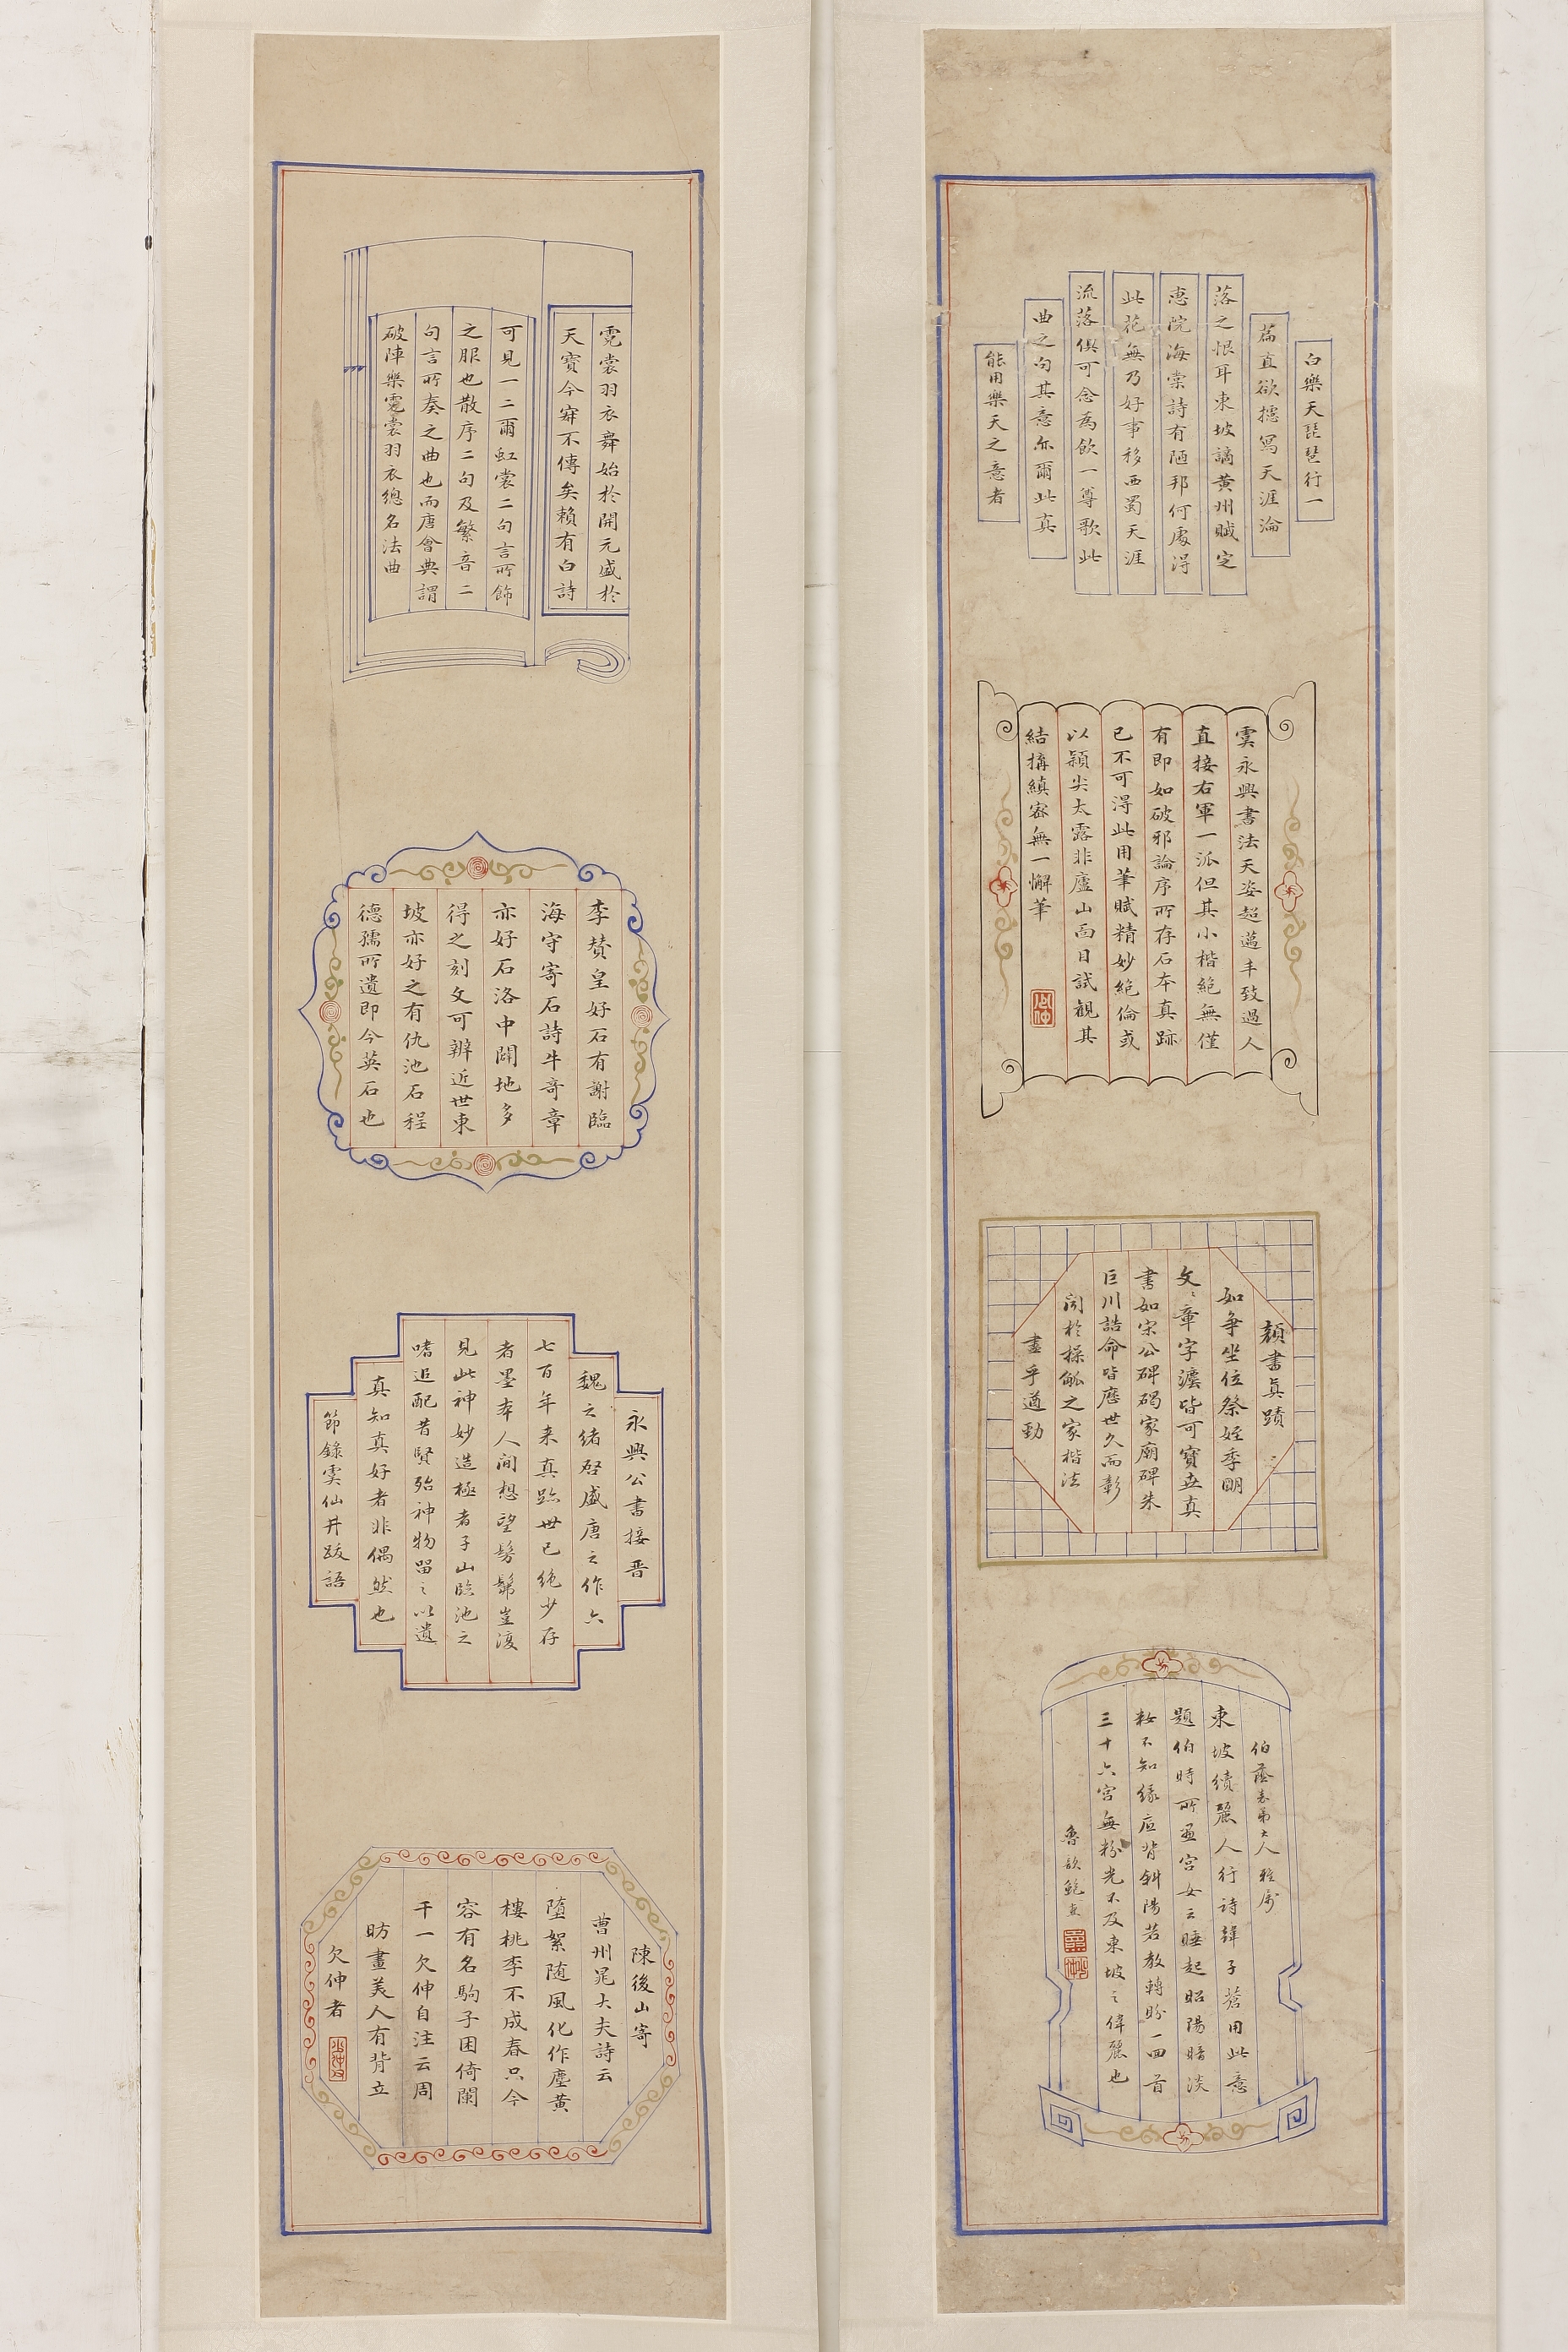 白樂天琵琶行一
篇直欲攄寫天涯淪
落之恨耳東坡謫黃州賦定
惠院海棠詩有陋邦何處得
此花無乃好事移西蜀天涯
流落俱可念為飲一尊歌此
曲之句其意亦爾此真
能用樂天之意者
虞永興書法天姿超邁丰致過人
直接右軍一派但其小楷絕無僅
有即如破邪論序所存石本真跡
已不可得此用筆賦精妙絕倫或
以穎尖太露非廬山面目試觀其
結構縝密無一懈筆
顏書真蹟
如爭坐位祭姪季明
文文章字灋皆可寶真
書如宋公碑碣家廟碑朱
巨川誥命皆應世久而彰
閒於操觚之家楷法
盡乎遒勁
伯蔭表弟大人雅屬
東坡續麗人行詩韓子蒼用此意
題伯時所畫宮女云睡起昭陽暗淡
粧不知緣底背斜陽若教轉盼一回首
三十六宮無粉光不及東坡之偉麗也
魯歆鮑
霓裳羽衣舞始於開元盛於
天寶今寂不傳矣賴有白詩
可見一二爾虹裳二句言所飾
之服也散序二句及繁音二
句言所奏之曲也而唐會典謂
破陣樂霓裳羽衣總名法曲
李贊皇好石有謝臨
海守寄石詩牛奇章
亦好石洛中闢地多
得之刻文可辨近世東
坡亦好之有仇池石程
德孺所遺即今英石也
永興公書接晉
魏之緒啓盛唐之作六
七百年来真跡世已絕少存
者墨本人間想望髣髴豈復
見此神妙造極者子山臨池之
嗜追配昔賢殆神物留之以遺
真知真好者非偶然也
節錄虞仙井跋語
陳後山寄
曹州晁大夫詩云
墮絮随風化作塵黃
樓桃李不成春只今
容有名駒子困倚闌
干一欠伸自注云周
昉畫美人有背立
欠伸者